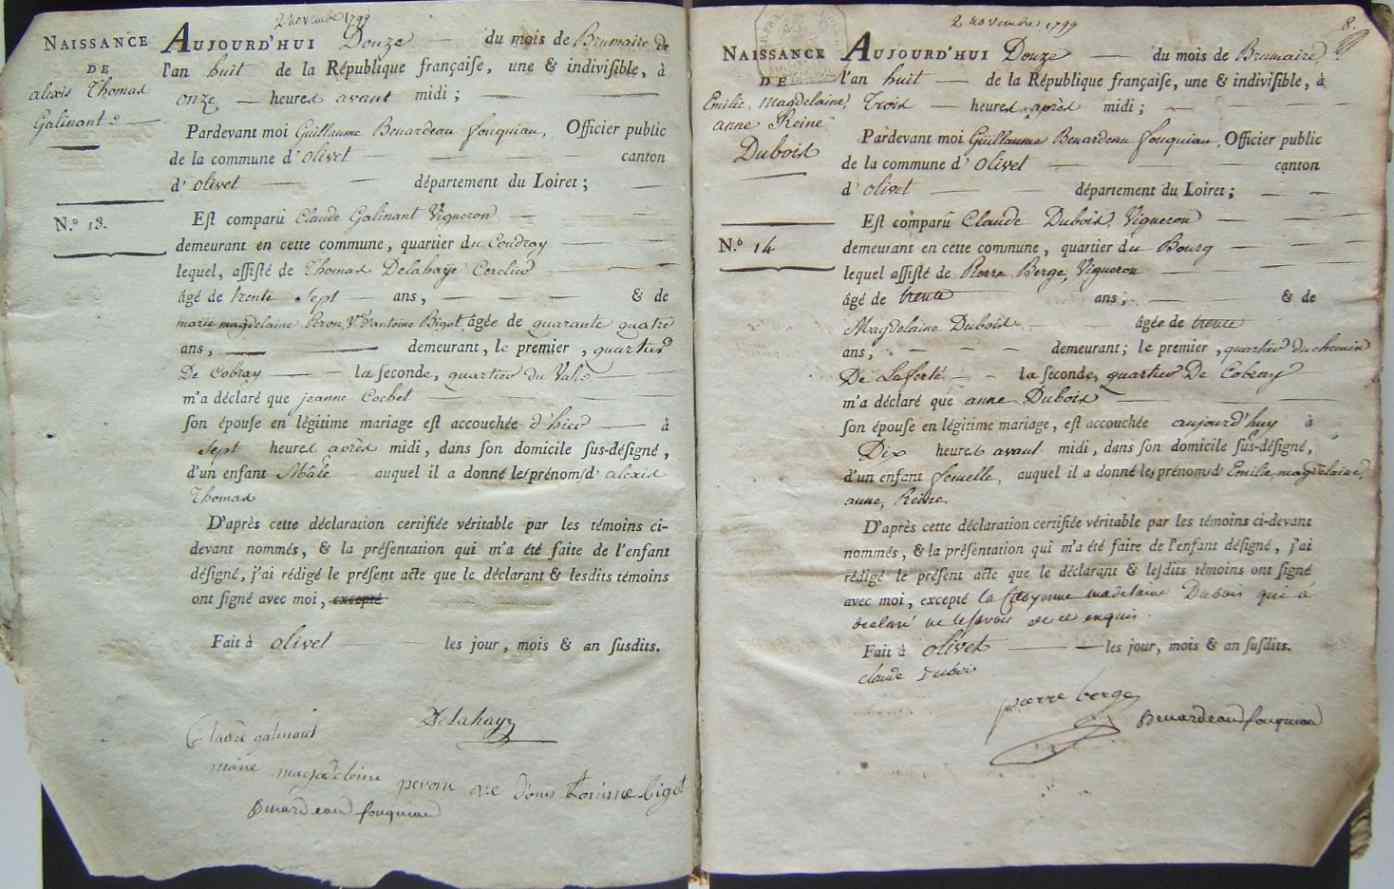 2 novembre 1799
NAISSANCE
DE
alexis Thomas
Galinant
N.o 13.
AUJOURD'HUI Douze du mois de Brumaire de
l'an huit de la République françaiſe, une & indiviſible, à
onze heures avant midi ;
Pardevant moi Guillaume Benardeau fouquiau, Officier public
de la commune d'olivet canton
d'olivet département du Loiret ;
Eſt comparu Claude Galinant Vigneron
demeurant en cette commune, quartier du Coudray
lequel, aſſiſté de Thomas Delahaye Cerclier
âgé de trente sept ans, & de
marie magdelaine Peron Ve d'antoine Bigot âgée de quarante quatre
ans, demeurant, le premier, quartier
De Cobray la ſeconde, quartier du Val
m'a déclaré que jeanne Cochet
ſon épouſe en légitime mariage eſt accouchée d'hier à
sept heures après midi, dans ſon domicile ſus-déſigné,
d'un enfant Mâle auquel il a donné les prénoms d'alexis
Thomas
D'après cette déclaration certifiée véritable par les témoins ci-
devant nommés, & la préſentation qui m'a été faite de l'enfant
déſigné, j'ai rédigé le préſent acte que le déclarant & lesdits témoins
ont ſigné avec moi, excepté
Fait à olivet les jour, mois & an susdits.
Delahaye
Claude galinant
marie magdeleine peron
Benardeau fouquiau
2 novembre 1799
8.
NAISSANCE
DE
Emilie, Magdelaine,
anne Reine
Dubois
N.o 14
AUJOURD'HUI Douze du mois de Brumaire
l'an huit de la République françaiſe, une & indiviſible, à
Trois heures après midi ;
Pardevant moi Guillaume Benardeau fouquiau, Officier public
de la commune d'olivet canton
d'olivet département du Loiret ;
Eſt comparu Claude Dubois, Vigneron
demeurant en cette commune, quartier du Bourg
lequel aſſiſté de Pierre Berge, Vigneron
âgé de trente ans ; & de
Magdelaine Dubois âgée de trente
ans, demeurant ; le premier, quartier du chemin
De Laferté la ſeconde, quartier De Cobray
m'a déclaré que anne Dubois
ſon épouſe en légitime mariage, eſt accouchée aujourd'huy à
Dix heures avant midi, dans ſon domicile ſus-déſigné,
d'un enfant femelle, auquel il a donné les prénoms d'Emilie, magdelaine,
anne, Reine.
D'après cette déclaration certifiée véritable par les témoins ci-devant
nommés, & la préſentation qui m'a été faite de l'enfant déſigné, j'ai
rédigé le préſent acte que le déclarant & leſdits témoins ont ſigné
avec moi, excepté la Citoyenne madelaine Dubois qui a
declaré ne le savoir de ce enquis.
Fait à olivet les jour, mois & an ſusdits.
claude Dubois
pierre berge
Benardeau fouquiau